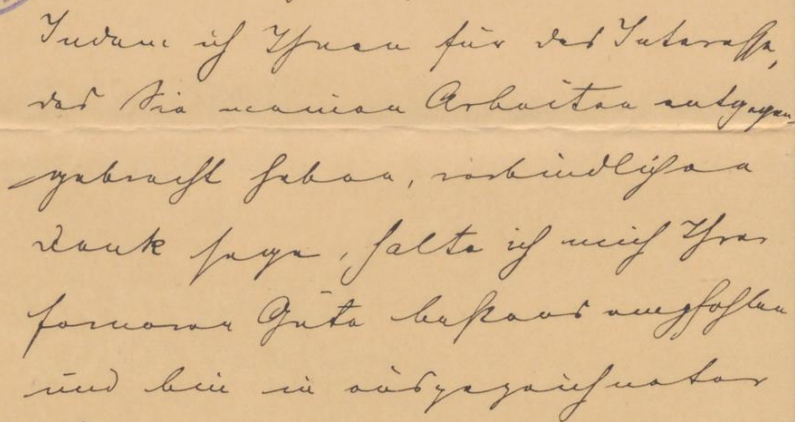 Indem ich Ihnen für das Interesse,
das Sie meinen Arbeiten entgegen-
gebracht haben, verbindlichen
Dank sage, halte ich mich Ihrer
ferneren Güte bestens empfohlen
und bin in ausgezeichneter